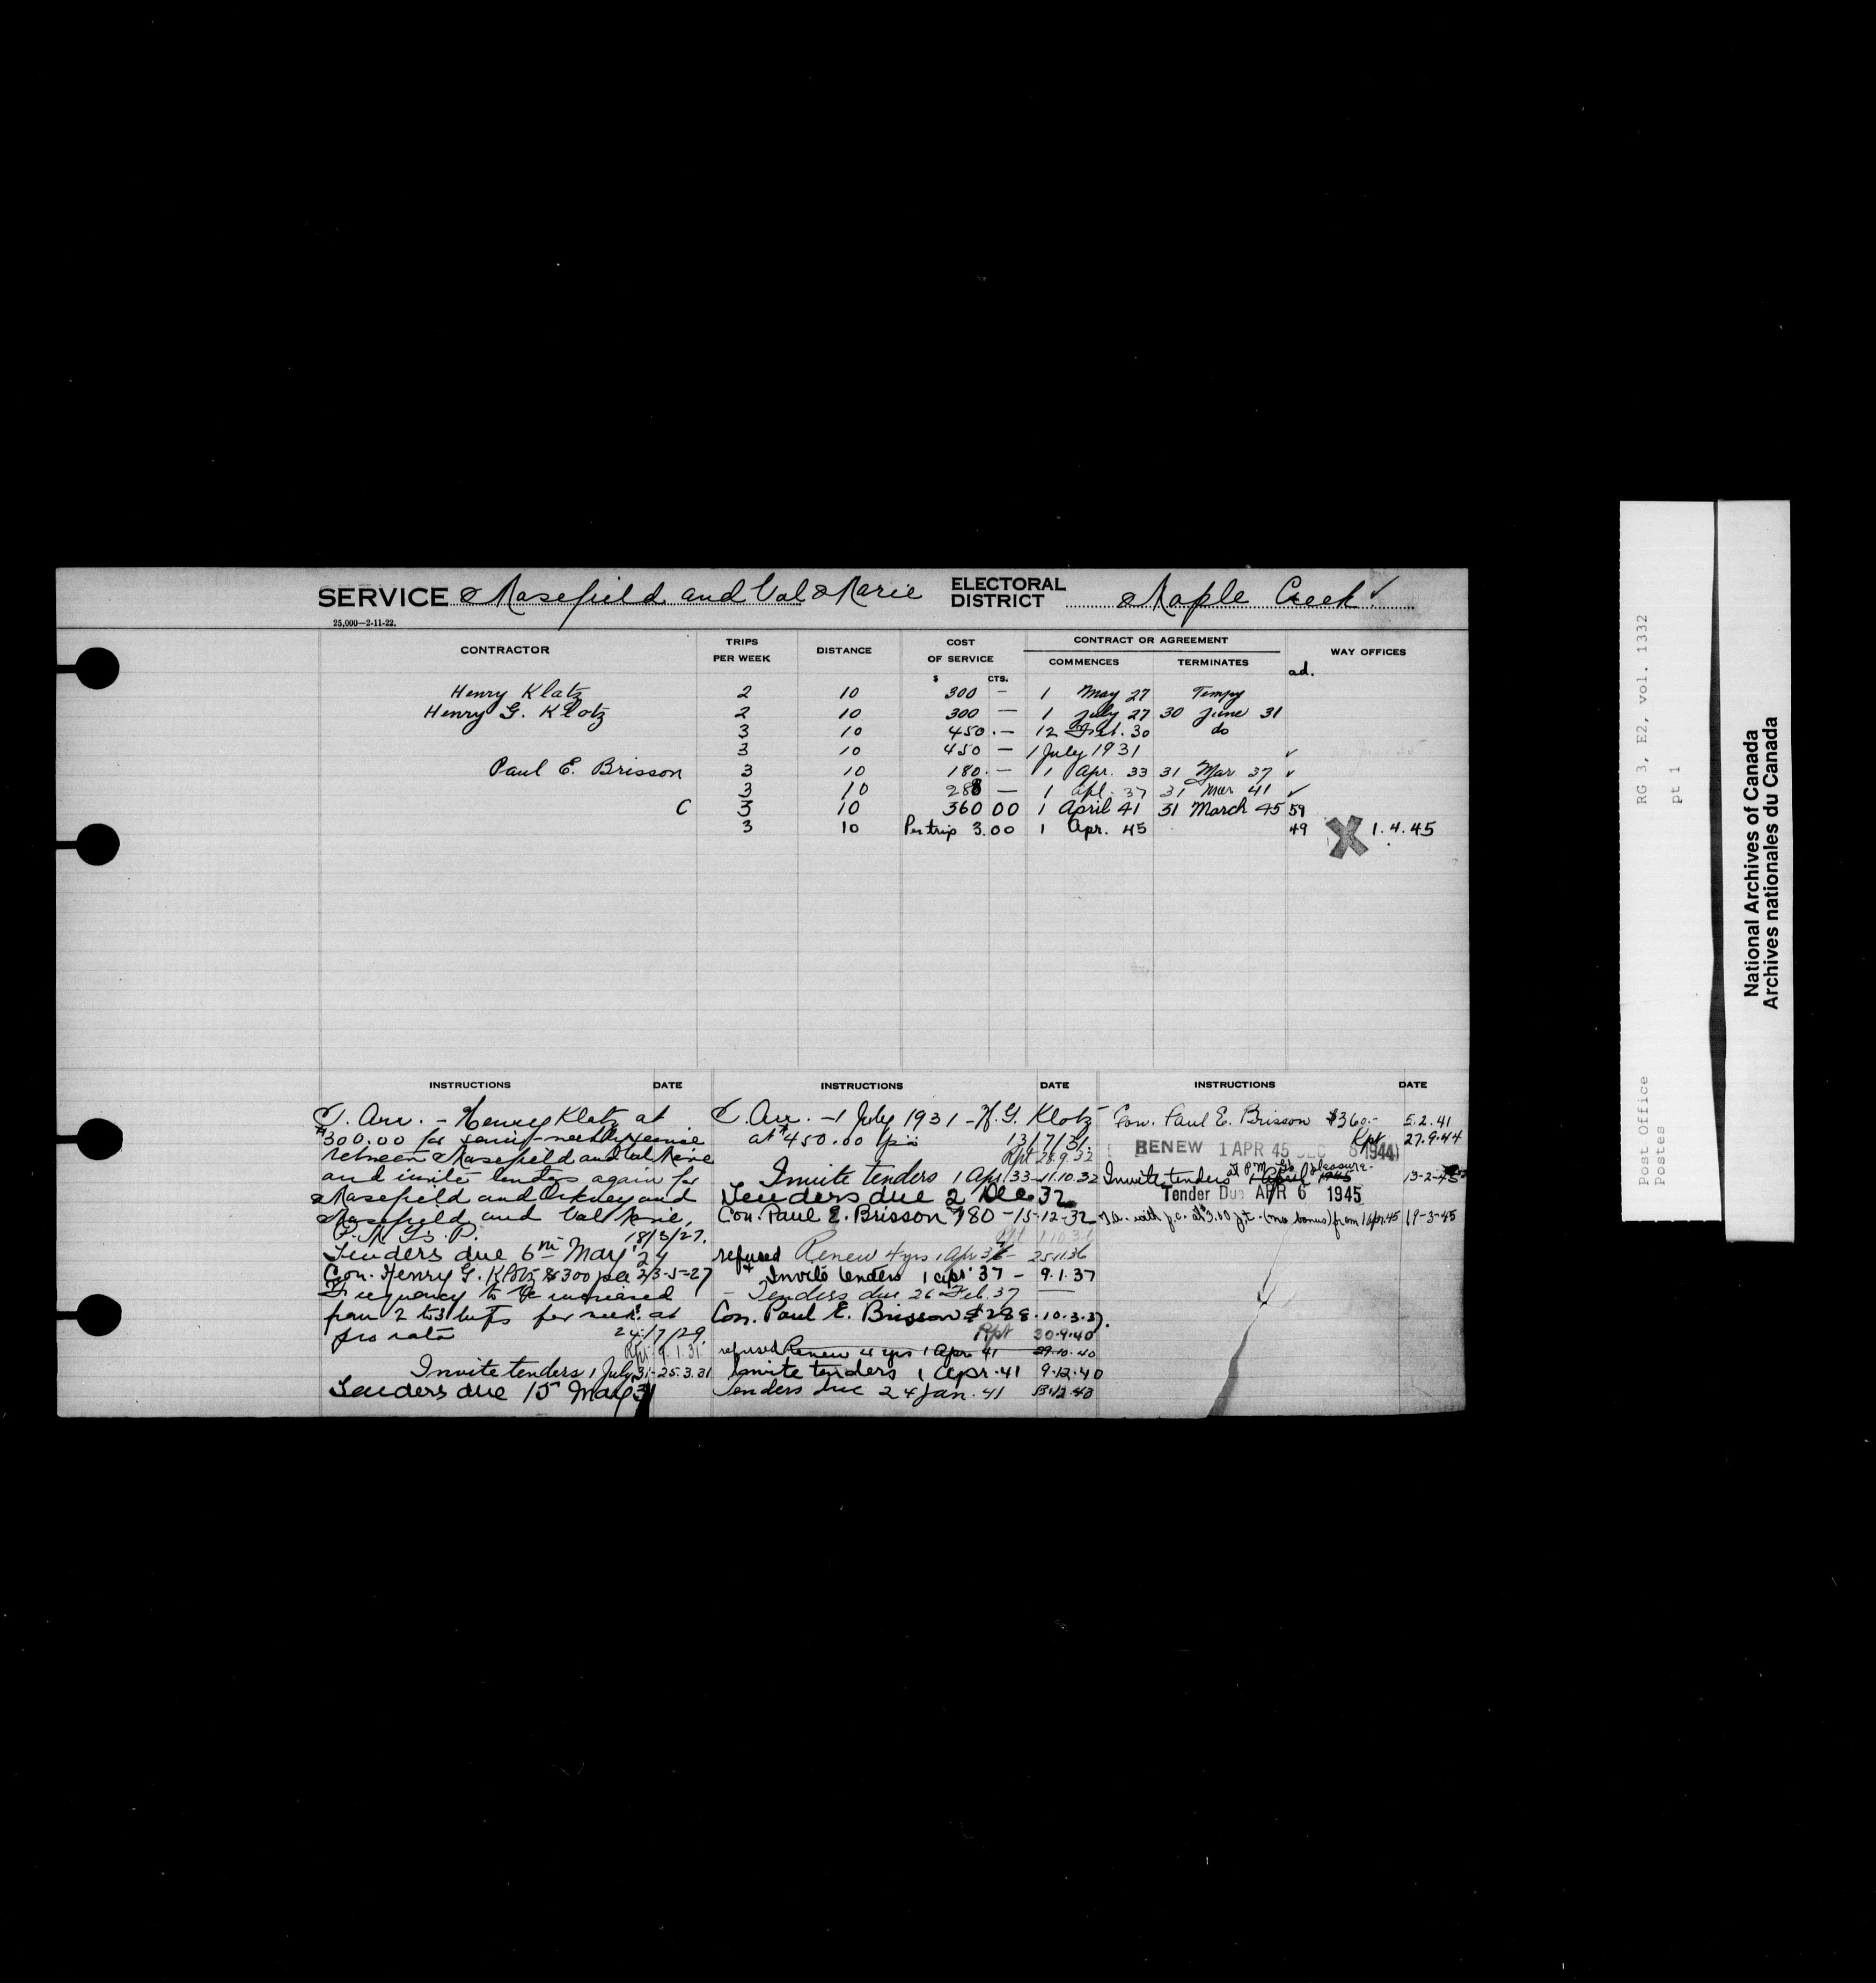 SERVICE Masefield and Val Marie ELECTORAL DISTRICT Maple Creek ✓
25,000—2-11-22.
CONTRACTOR TRIPS PER WEEK DISTANCE COST OF SERVICE CONTRACT OR AGREEMENT WAY OFFICES
$ CTS. COMMENCES TERMINATES ad.
Henry Klatz 2 10 300 — 1 May 27 Tempy
Henry G. Klotz 2 10 300 — 1 July 27 30 June 31
3 10 450.— 12 Feb. 30 do
3 10 450 — 1 July 1931 ✓
Paul E. Brisson 3 10 180.— 1 Apr. 33 31 Mar 37 ✓
3 10 288 — 1 Apl. 37 31 Mar 41 ✓
C 3 10 360 00 1 April 41 31 March 45 59
3 10 Per trip 3.00 1 Apr. 45 49 X 1.4.45
INSTRUCTIONS DATE
T. Arr. - Henry Klatz at
$300.00 for semi-weekly service
between Masefield and Val Marie
and invite tenders again for
Masefield and Orkney and
Masefield and Val Marie.
18/3/27.
Tenders due 6th May 27
Con. Henry G. Klotz $300 pa 23-5-27
Frequency to be increased
from 2 to 3 trips per week at
pro rata 24/7/29.
Rpt 9.1.31.
Invite tenders 1 July 31-25.3.31
Tenders due 15 May 31
INSTRUCTIONS DATE
T. Arr. - 1 July 1931 - H. G. Klotz
at $450.00 13/7/31.
Rpt 28.9.32
Invite tenders 1 Apr 33-11.10.32
Tenders due 2 Dec. 32
Con. Paul E. Brisson 180 -15-12-32
Rpt 1.10.36
refused Renew 4 yrs 1 Apr 37- 25.11.36
+ Invite tenders 1 apr 37 - 9.1.37
- Tenders due 26 Feb. 37 —
Con. Paul E. Brisson $288. 10.3.37.
Rpt 30.9.40
refused Renew 4 yrs 1 Apr 41 29.10.40
Invite tenders 1 Apr. 41 9.12.40
Tenders due 24 Jan. 41 13.12.40
INSTRUCTIONS DATE
Con. Paul E. Brisson $360.- 5.2.41
Rpt 27.9.44
RENEW 1 APR 45 DEC 8 1944
at P.M.G's pleasure.
Invite tenders 1 April 1945 13-2-45
Tender Due APR 6 1945
T.a. with p.c. at $3.00 p.t. (no bonus) from 1 Apr. 45 19-3-45
RG 3, E2, vol. 1332
pt 1
Post Office
Postes
National Archives of Canada
Archives nationales du Canada